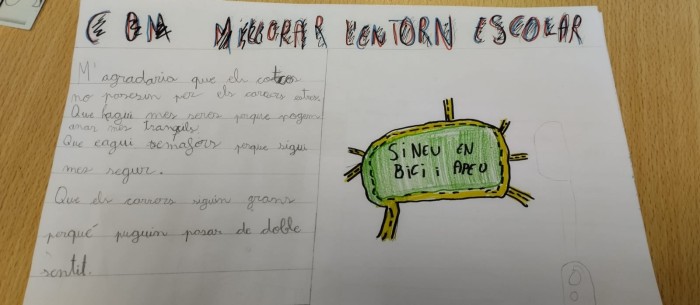 COM MILLORAR L'ENTORN ESCOLAR
M'agradaria que els cotxes
no passesin por els carrers estrets
Que hagui mes seres perque poguem
anar mes tranquls
Que eagui semafors perque sigui
mes segur.
Que els carrers siguin grans
perquè puguin pasar de doble
sentit.
SiNEU EN
BiCi i APEU